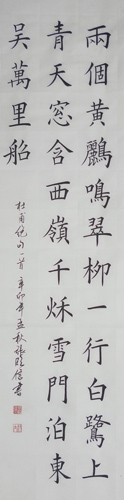 兩個黃鸝鳴翠柳一行白鷺上
青天窓含西嶺千秌雪門泊東
吳萬里船
杜甫絶句一首辛卯年孟秋
書